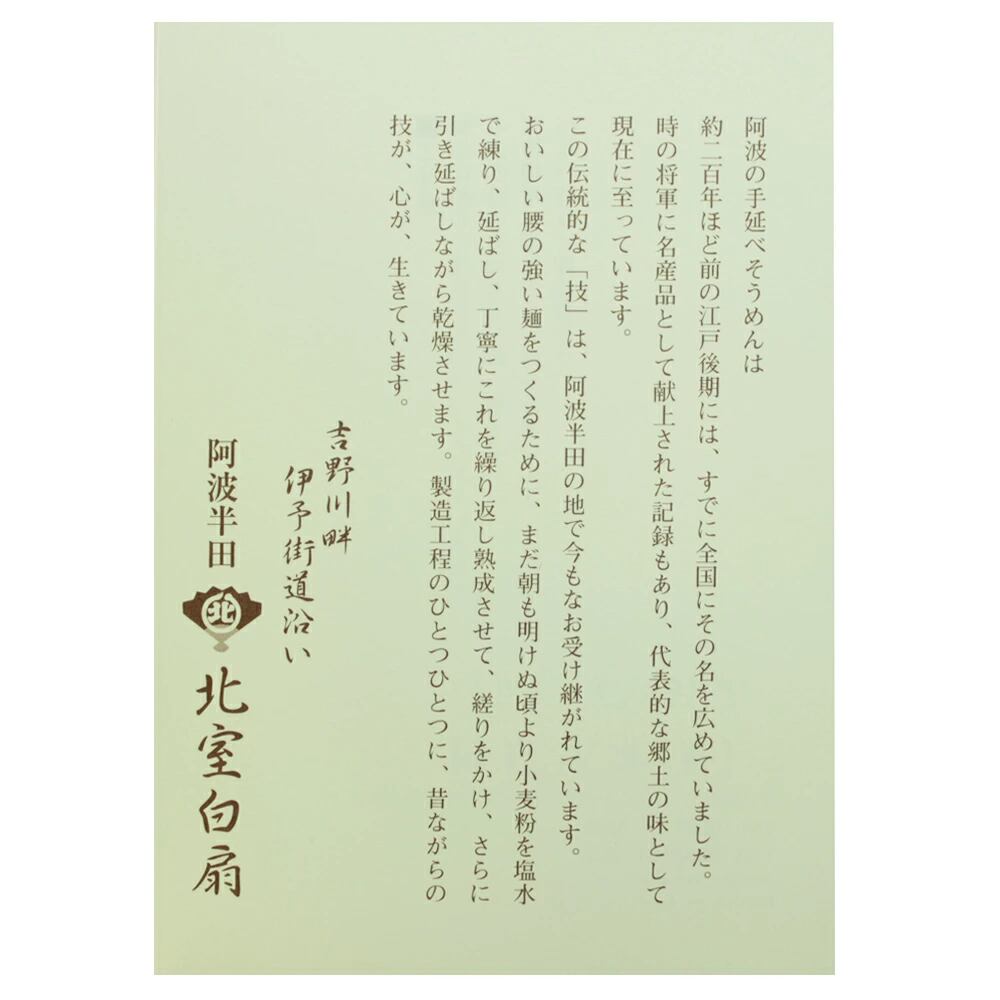 阿波の手延べそうめんは
約二百年ほど前の江戸後期には、すでに全国にその名を広めていました。
時の将軍に名産品として献上された記録もあり、代表的な郷土の味として
現在に至っています。
この伝統的な「技」は、阿波半田の地で今もなお受け継がれています。
おいしい腰の強い麺をつくるために、まだ朝も明けぬ頃より小麦粉を塩水
で練り、延ばし、丁寧にこれを繰り返し熟成させて、縒りをかけ、さらに
引き延ばしながら乾燥させます。製造工程のひとつひとつに、昔ながらの
技が、心が、生きています。
吉野川畔
伊予街道沿い
阿波半田 北 北室白扇